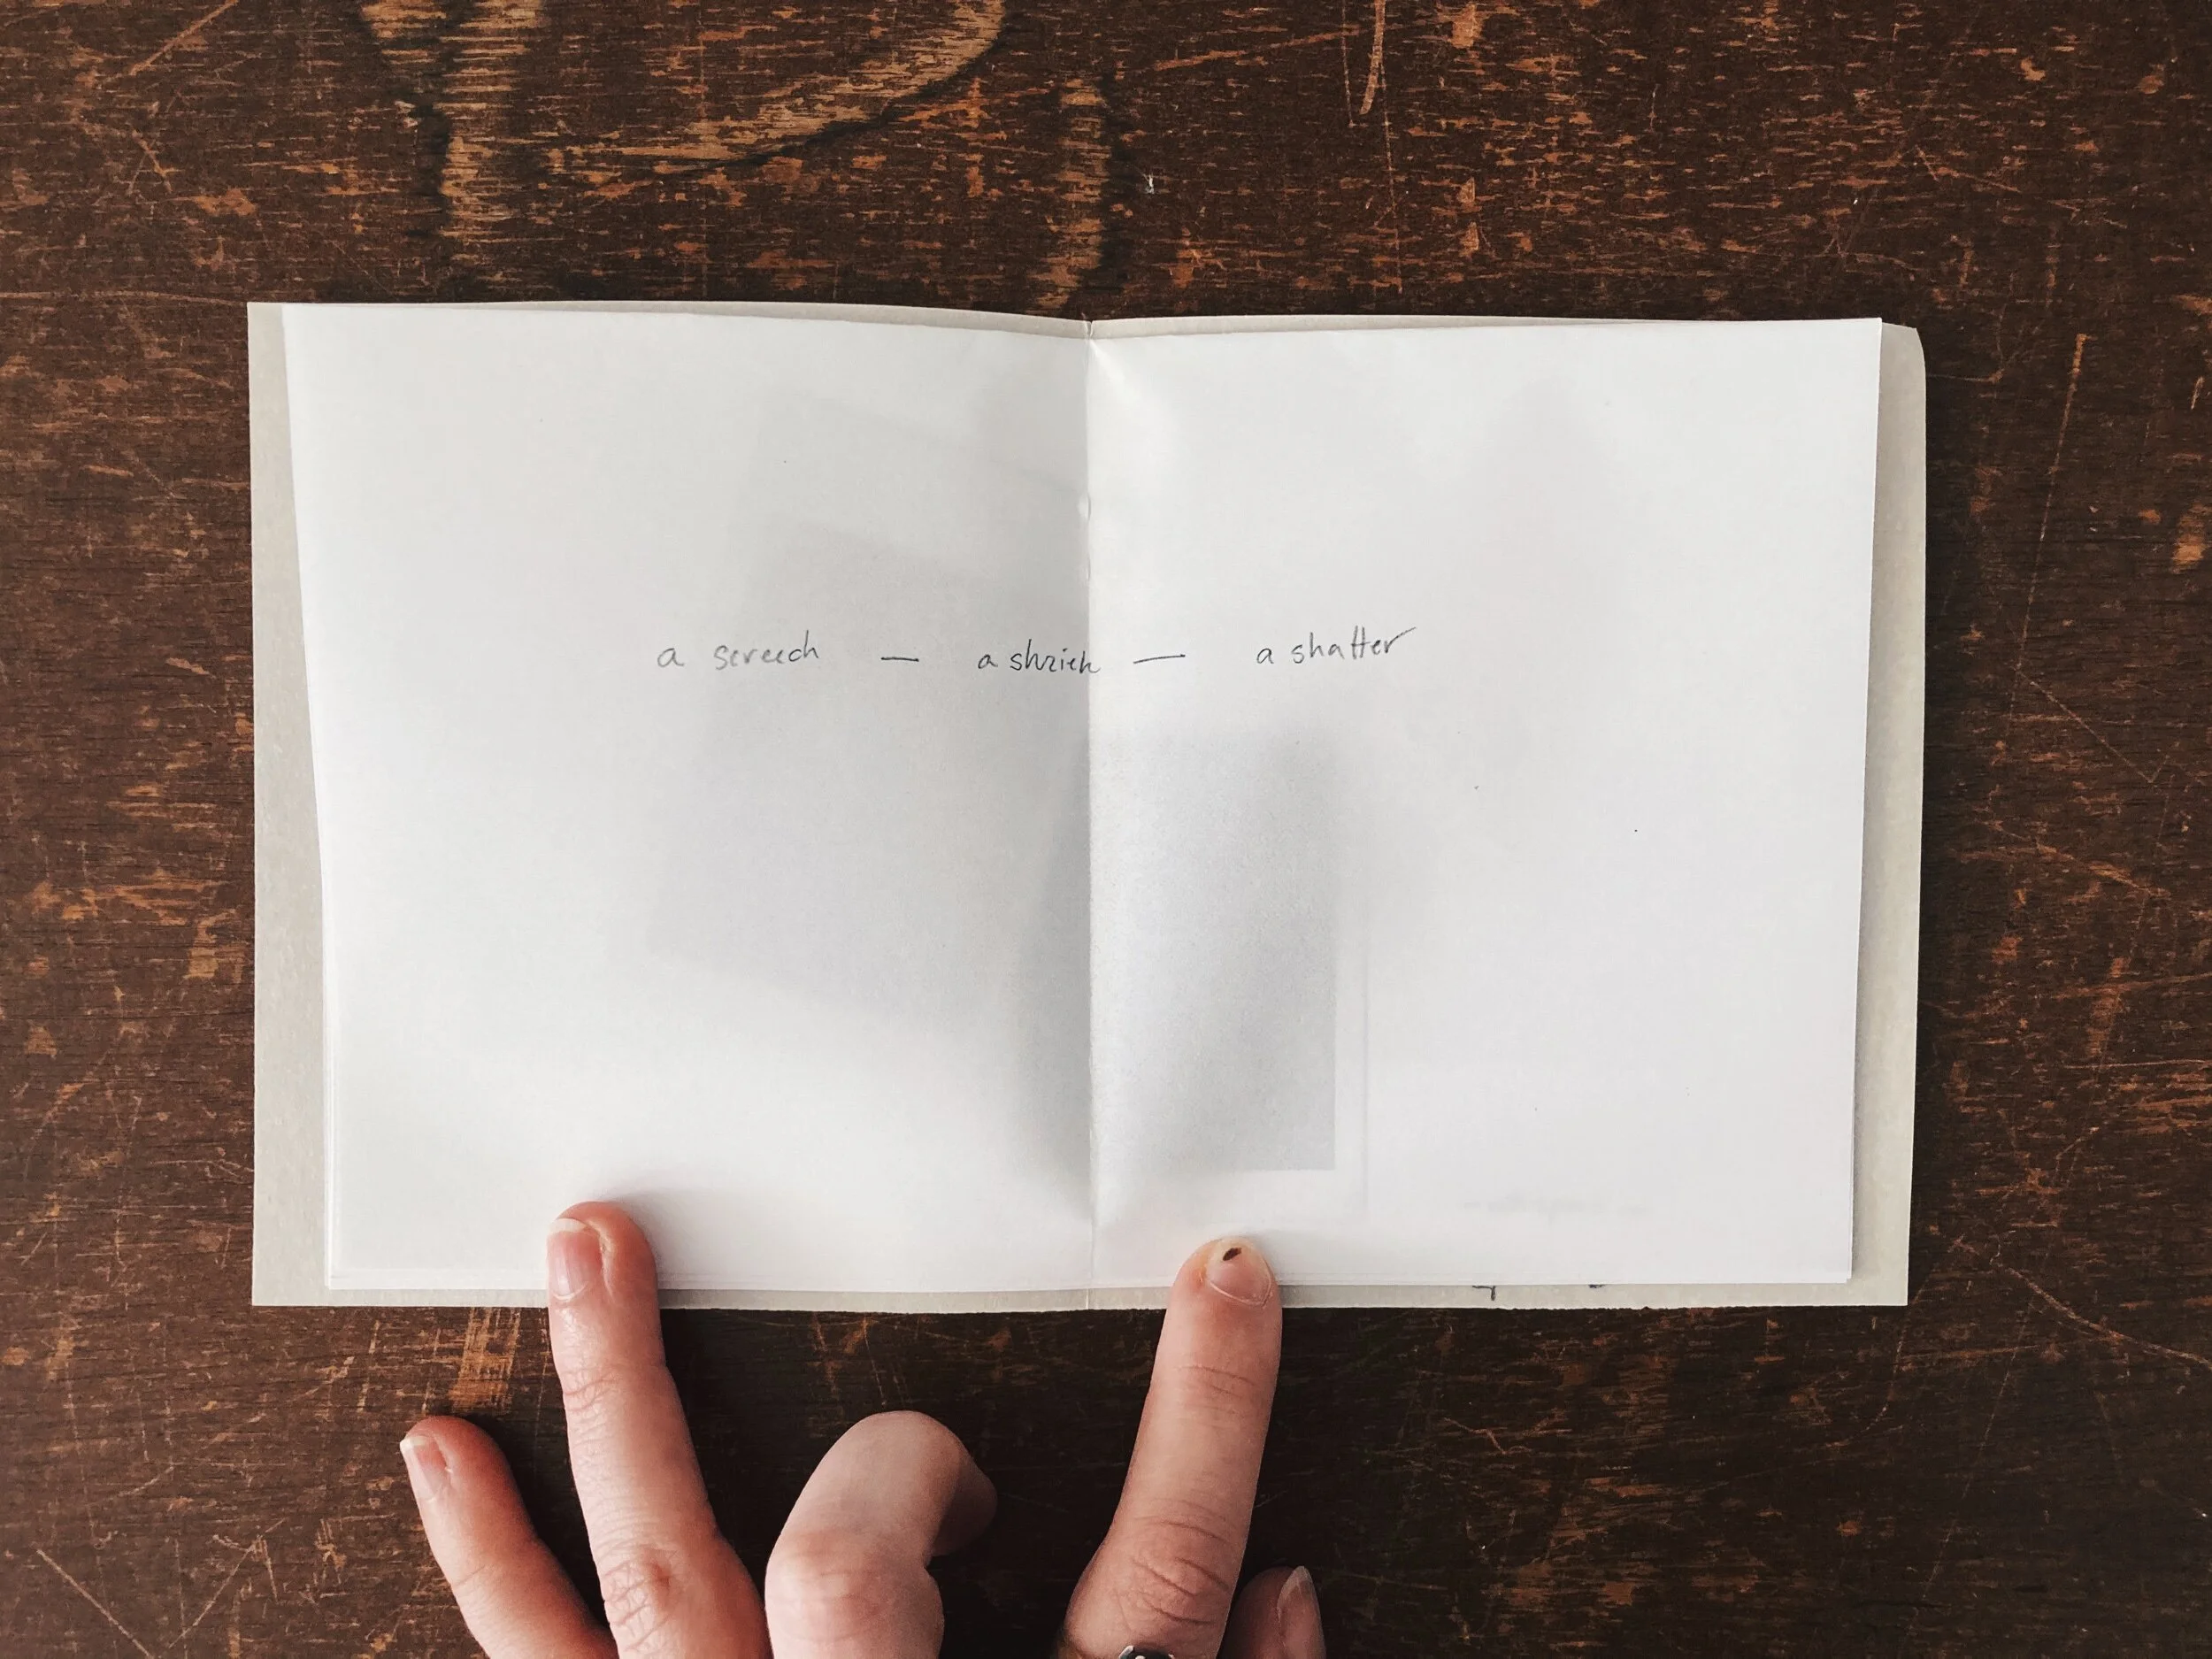 a screech — a shriek — a shatter